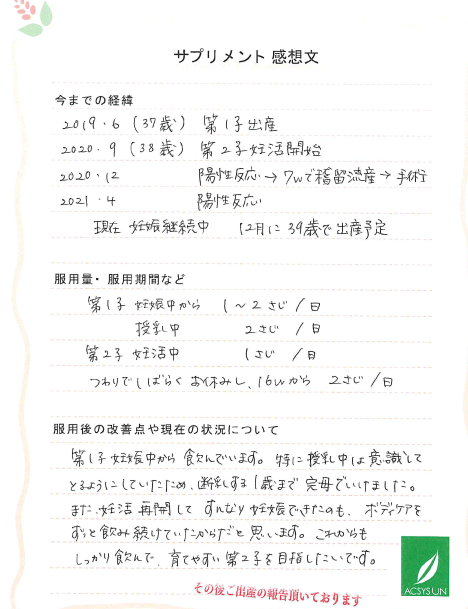 サプリメント 感想文
今までの経緯
2019.6 (37歳) 第1子出産
2020.9 (38歳) 第2子妊活開始
2020.12 陽性反応→7wで稽留流産→手術
2021.4 陽性反応
現在 妊娠継続中 12月に39歳で出産予定
服用量・服用期間など
第1子 妊娠中から 1〜2さじ/日
授乳中 2さじ/日
第2子 妊活中 1さじ/日
つわりでしばらくお休みし、16wから 2さじ/日
服用後の改善点や現在の状況について
第1子妊娠中から飲んでいます。特に授乳中は意識して
とるようにしていたため、断乳する1歳まで完母でいけました。
また妊活再開してすんなり妊娠できたのも、ボディケアを
ずっと飲み続けていたからだと思います。これからも
しっかり飲んで、育てやすい第2子を目指したいです。
その後ご出産の報告頂いております
ACSYSUN